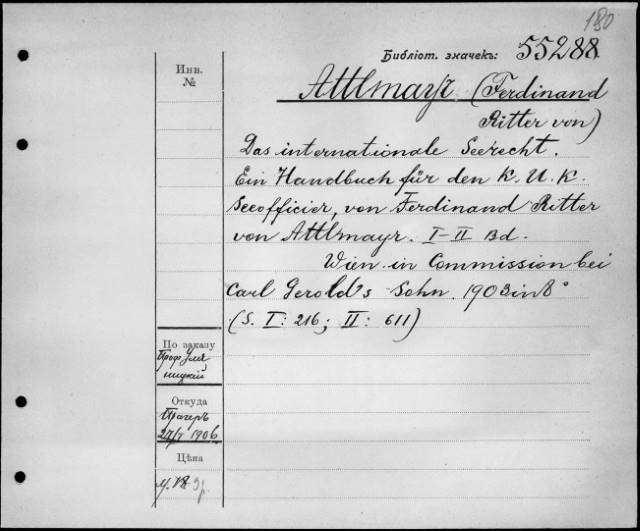 180
Библіот. значекъ: 55288.
Инв.
№
Attlmayr (Ferdinand
Ritter von)
Das internationale Seerecht.
Ein Handbuch für den K. U. K.
Seeofficier, von Ferdinand Ritter
von Attlmayr. I–II Bd.
Wien in Commission bei
Carl Gerold's Sohn. 1903 in 8°
(S. I: 216; II: 611)
По заказу
Проф. Уля
ницкій
Откуда
1906
Цѣна